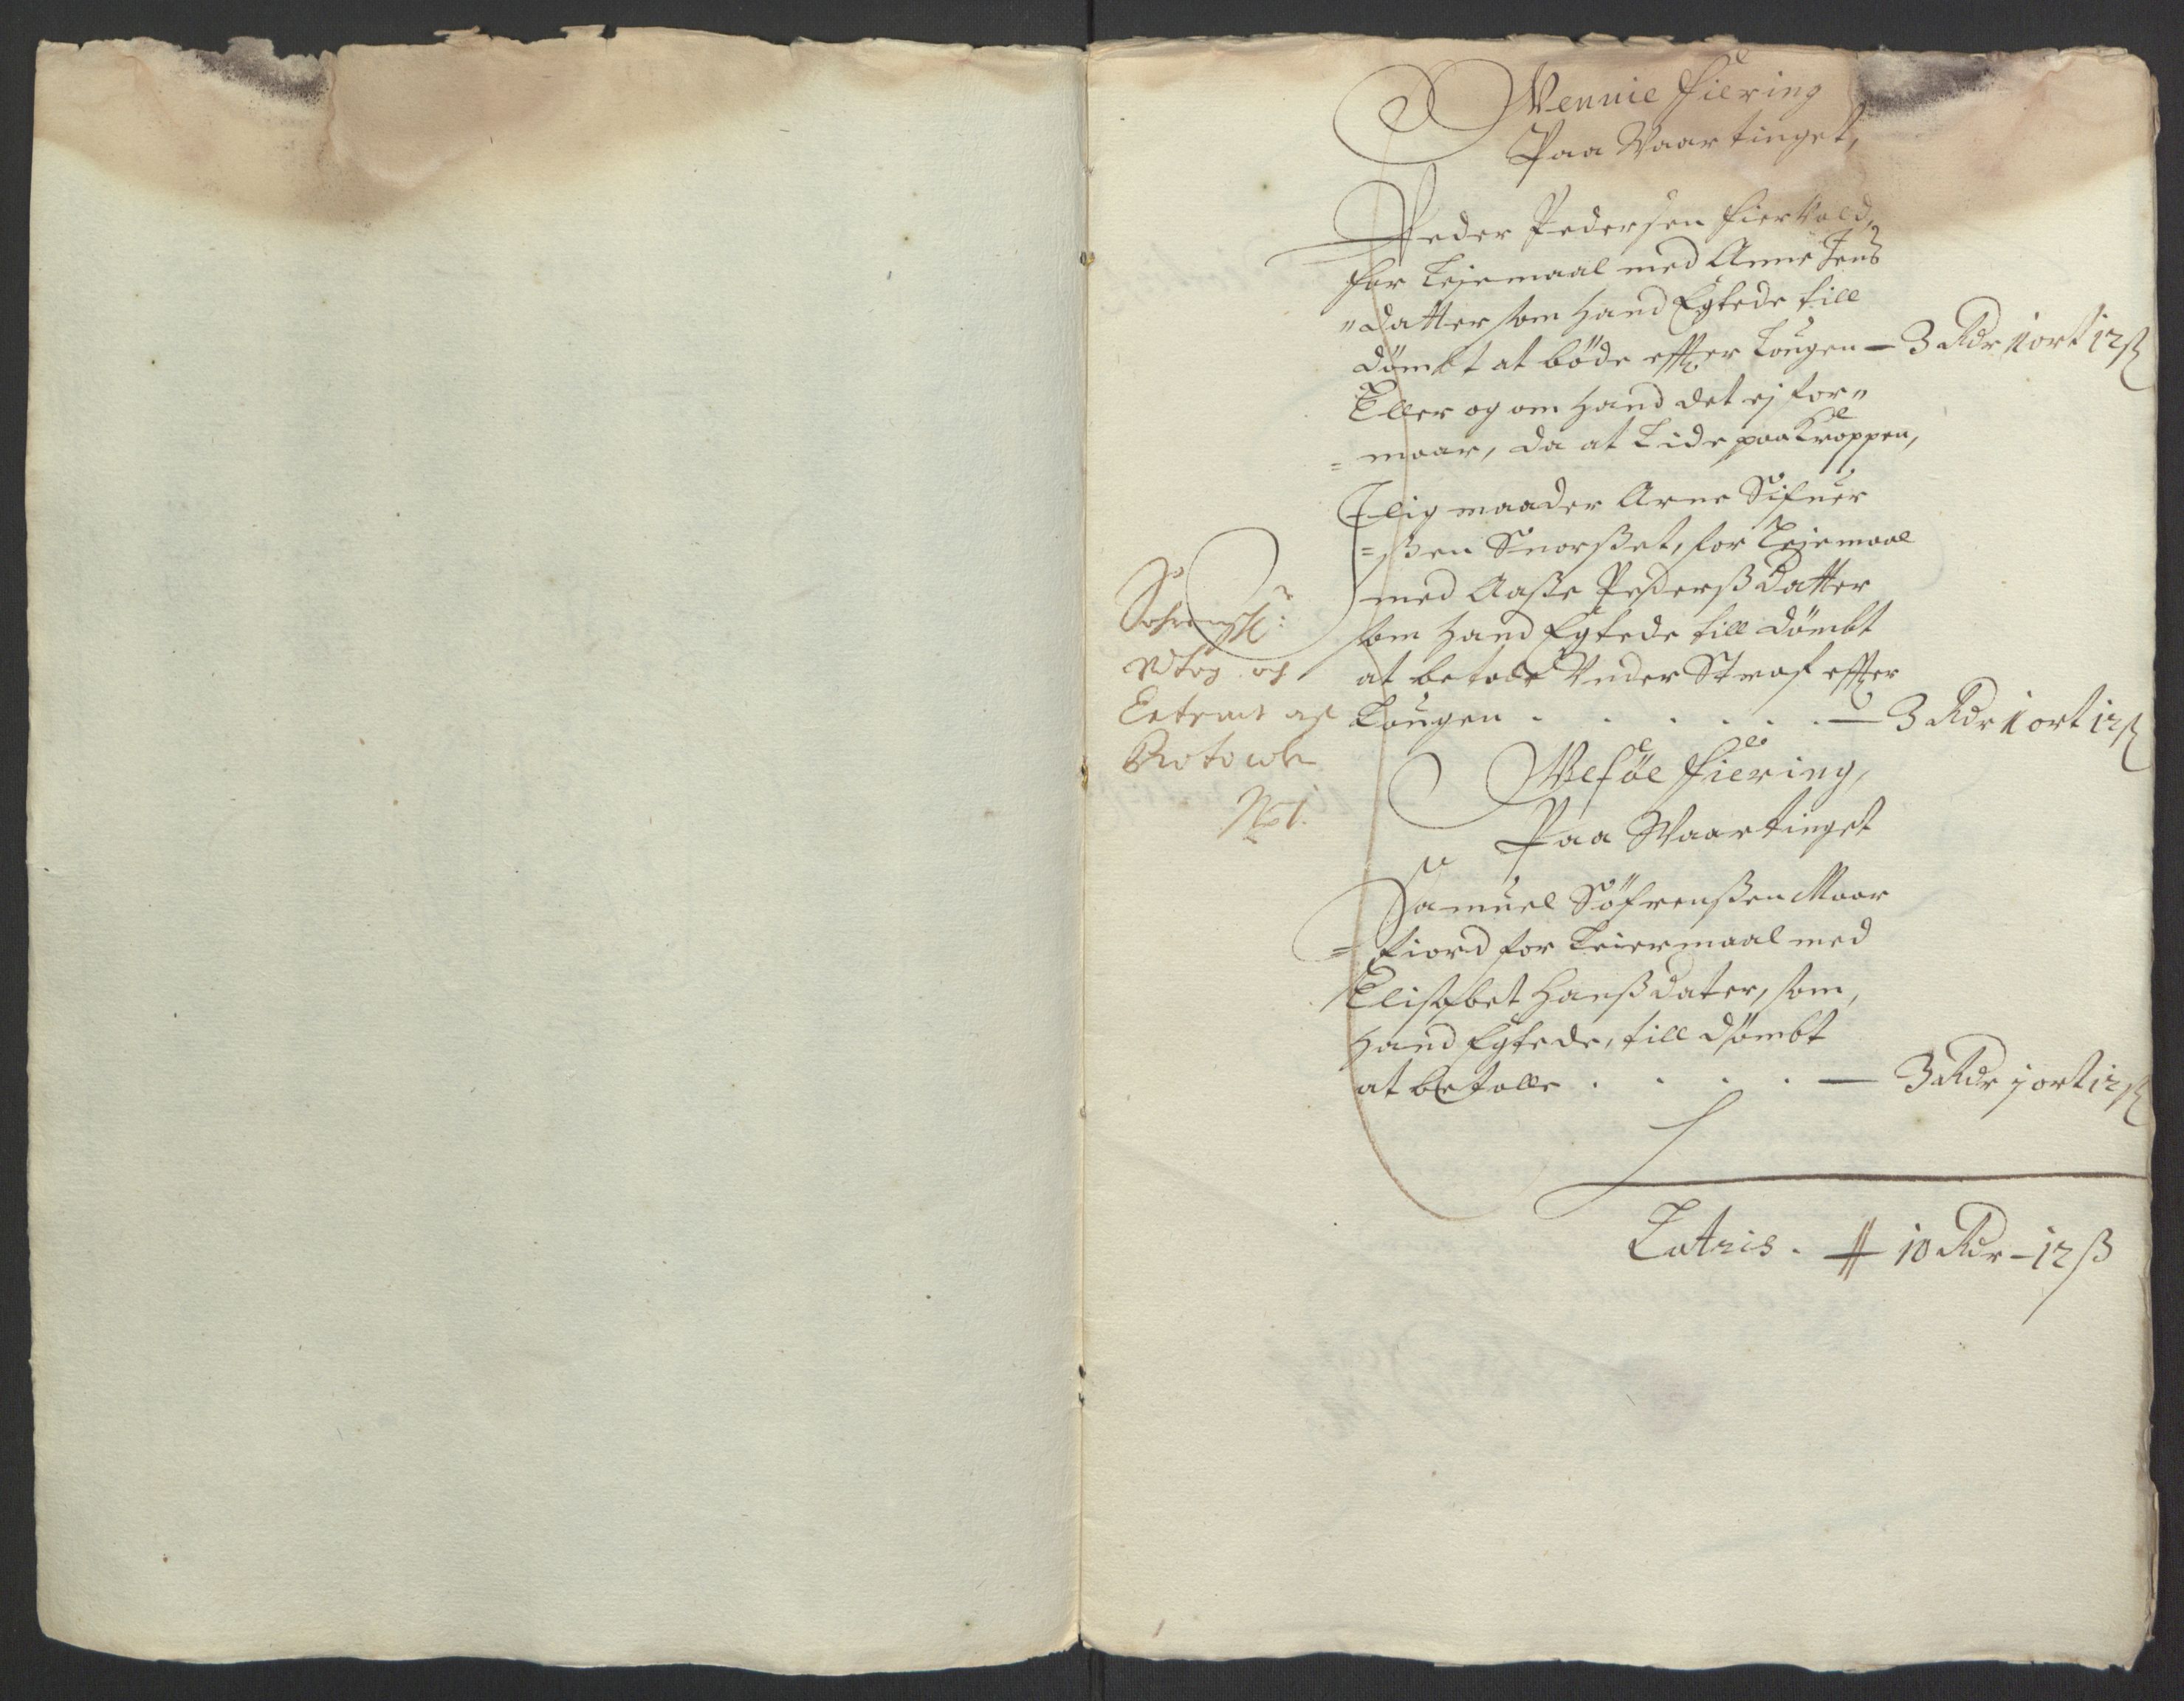 Vennie fiering
Paa Waartinget,
Peder Pedersen fierVold,
for Lejemaal med Anne Jens
"datter som hand Egtede till
dömbt at böde effter Lougen — 3 Rdr 1 ort 12 ß
Eller og om hand det ej for"
= maar, da at Lide paa Kroppen,
I lig maader Arne Sifuer
=ßen Snorßet, for Lejemaal
med Aaße Pederß Datter
som hand Egtede till dömbt
at betale Under Straf effter
Lougen . . . . . . — 3 Rdr 1 ort 12 ß
Sohrenschr:
Udtog og
Extract af
Protocolen
No 1.
Weföe fiering,
Paa Waartinget
Samuel Söfrenßen Maar
= fiord for Leiermaal med
Elisabet Hanßdater, som,
Hand Egtede, till dömbt
at betalle . . . . — 3 Rdr 1 ort 12 ß
Latris . 10 Rdr – 12 ß